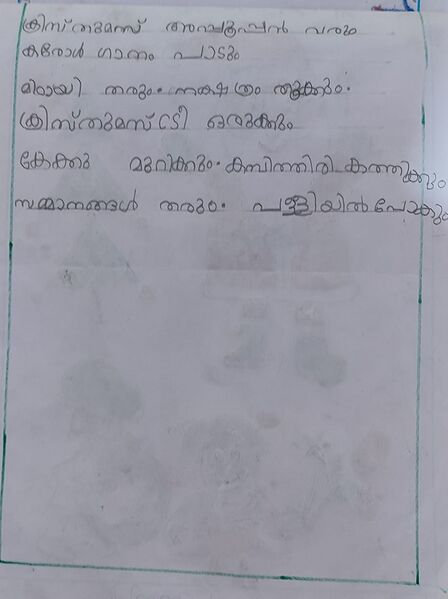 ക്രിസ്തുമസ് അപ്പൂപ്പൻ വരും
കരോൾ ഗാനം പാടും
മിഠായി തരും. നക്ഷത്രം തൂക്കും.
ക്രിസ്തുമസ് ട്രീ ഒരുക്കും
കേക്കു മുറിക്കും. കമ്പിത്തിരി കത്തിക്കും
സമ്മാനങ്ങൾ തരും. പള്ളിയിൽ പോകും